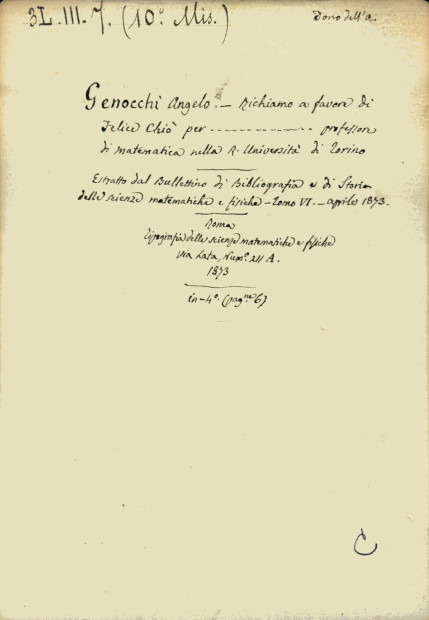 3L.III.7. (10º. Mis.)
Dono dell'a.
Genocchi Angelo. — Richiamo a favore di
Felice Chiò per ------------- professore
di matematica nella R. Università di Torino
Estratto dal Bullettino di Bibliografia e di Storia
delle scienze matematiche e fisiche — Tomo VI. — aprile 1873.
Roma
Tipografia delle scienze matematiche e fisiche
Via Lata, Numº. 211 A.
1873
in-4º. (pagne 6)
C